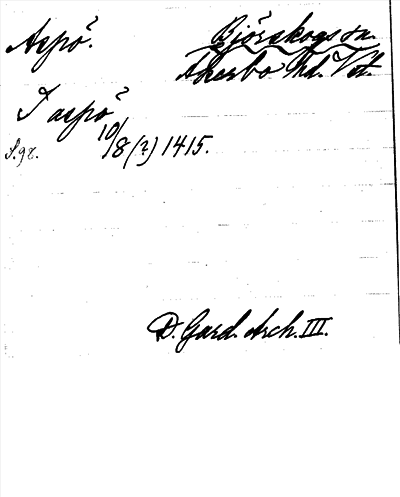 Aspö.
Björskogs sn.
Åkerbo hd. Vst.
I aspö
10/8 (?) 1415.
S. 98.
D. Gard. Arch. III.